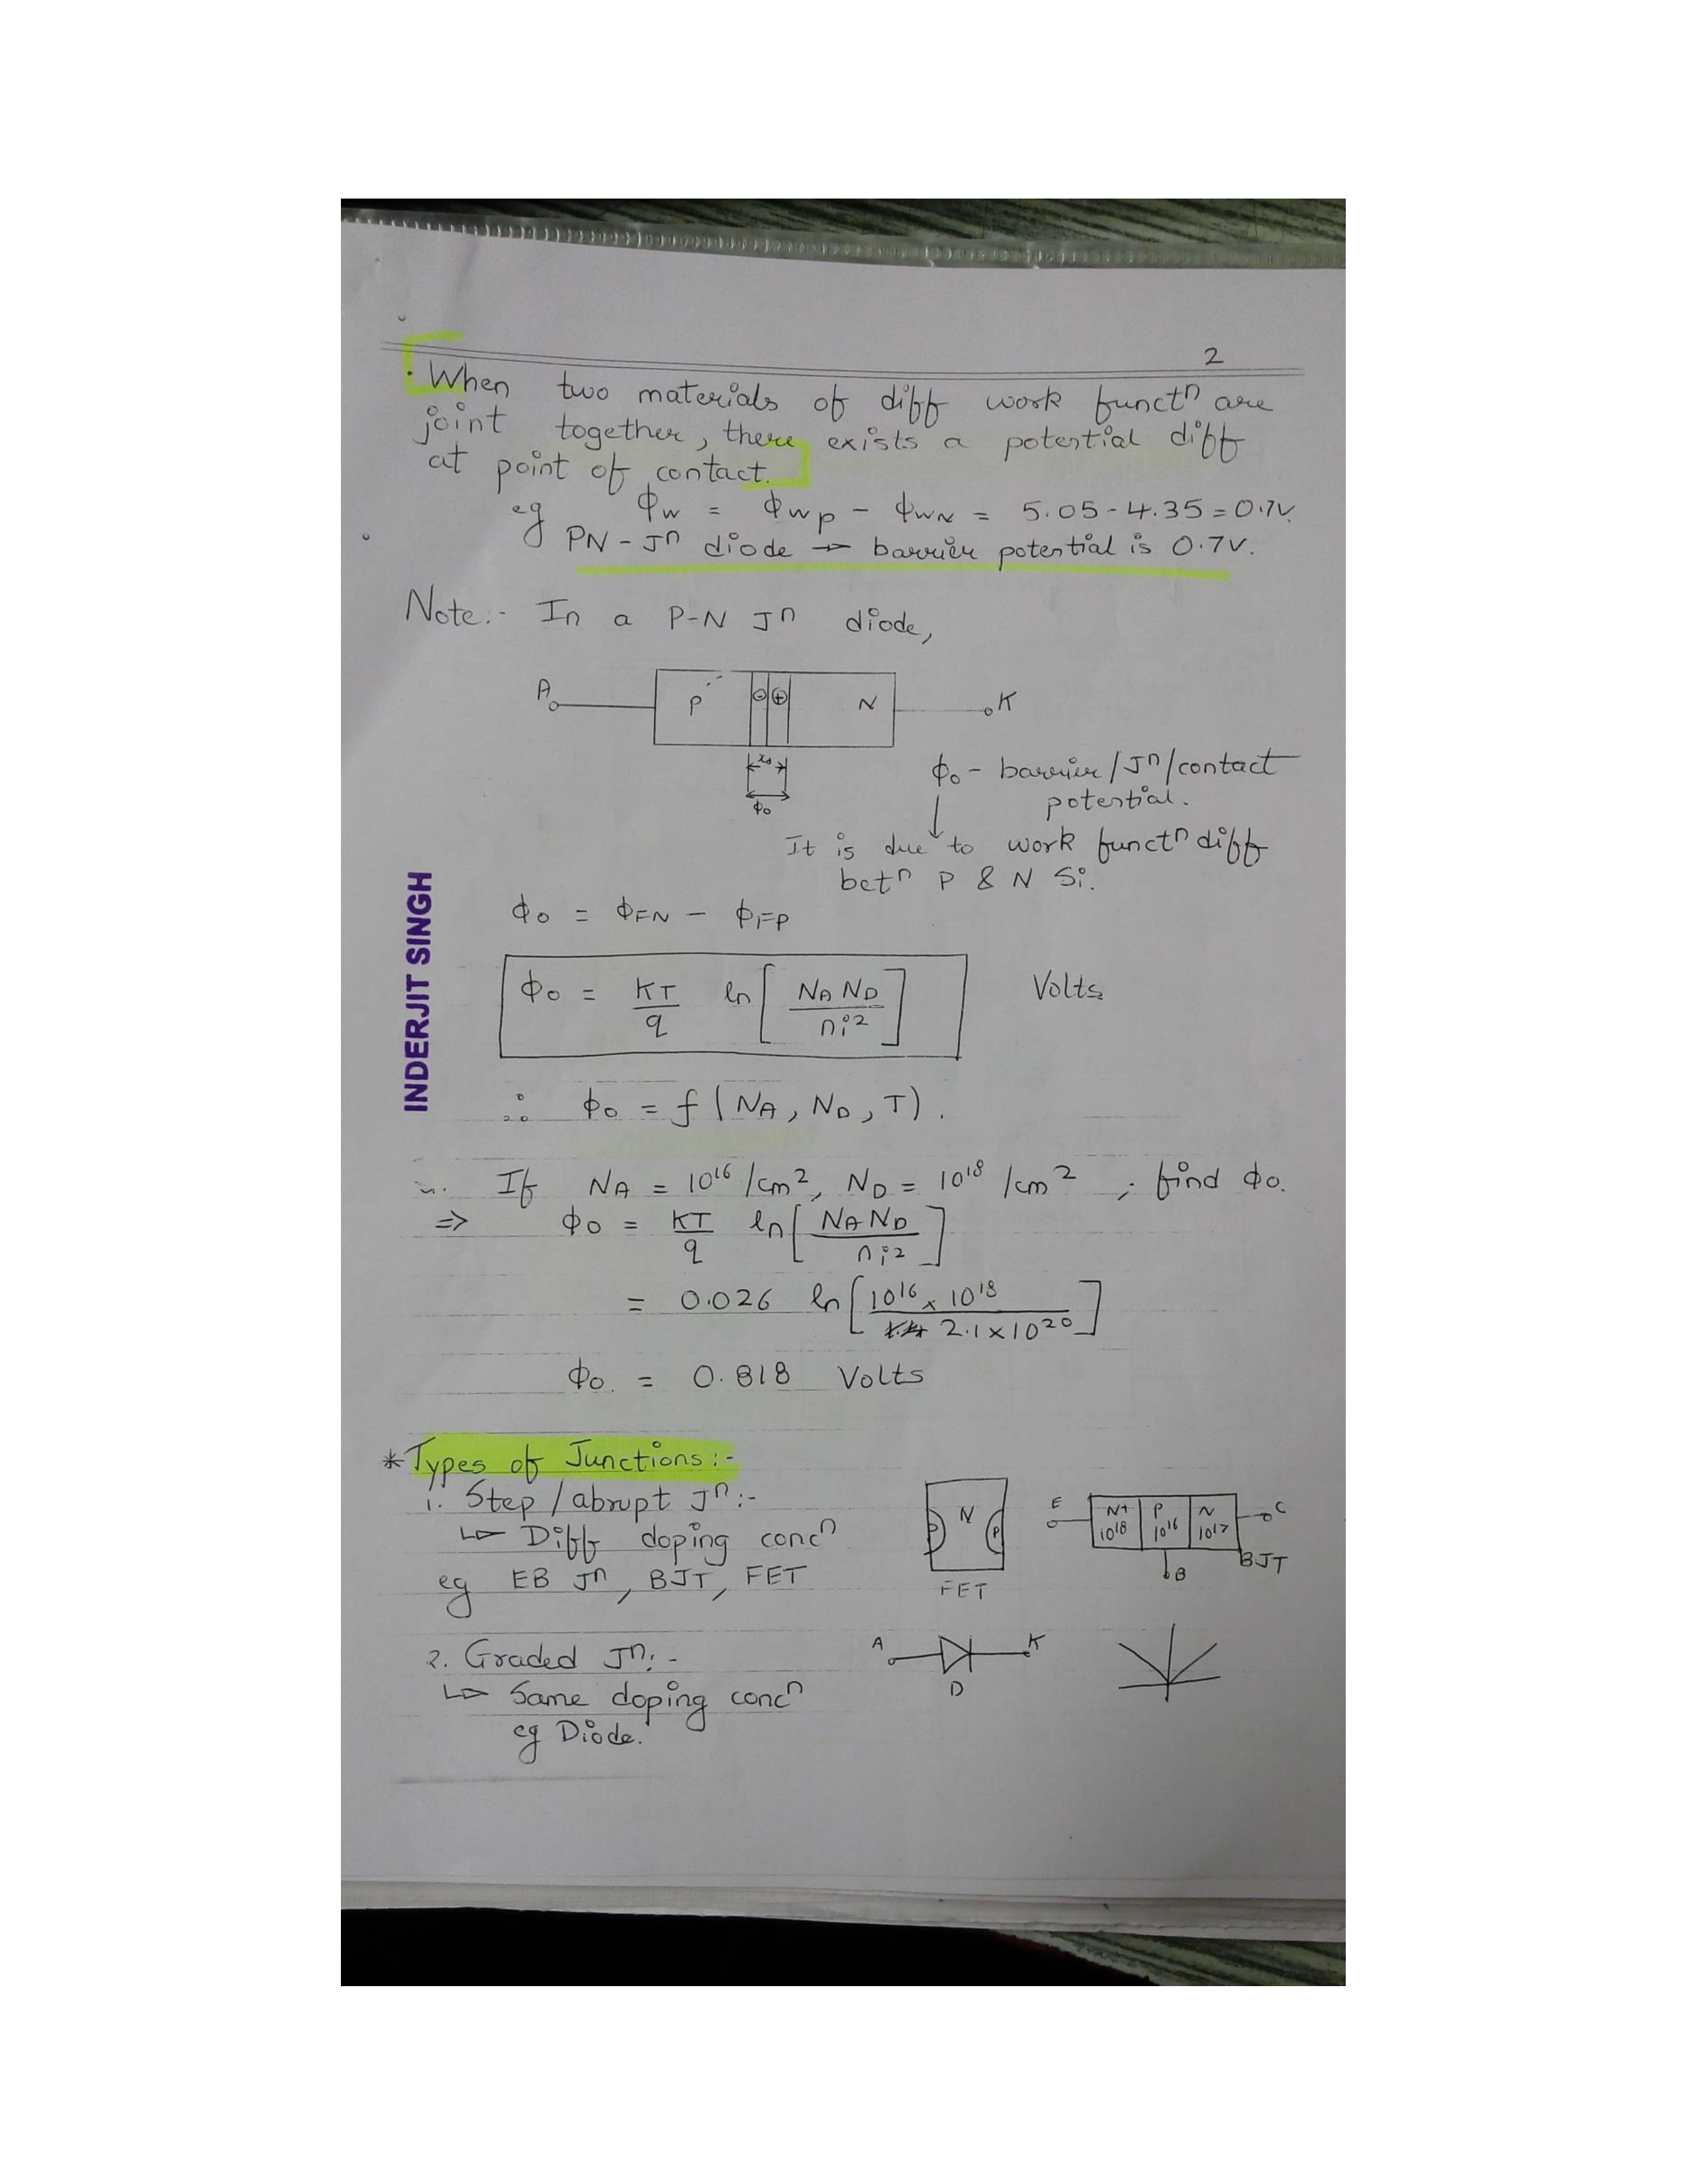 2
· When two materials of diff work functⁿ are
joint together, there exists a potential diff
at point of contact.
eg ϕw = ϕwp - ϕwN = 5.05 - 4.35 = 0.7V.
PN-Jⁿ diode → barrier potential is 0.7V.
Note:- In a P-N Jⁿ diode,
A P - + N K
xd
ϕo
ϕo - barrier/Jⁿ/contact
potential.
It is due to work functⁿ diff
betⁿ P & N Si.
INDERJIT SINGH
ϕo = ϕFN - ϕFP
ϕo = KT/q ln[NA ND / ni²] Volts
∴ ϕo = f(NA, ND, T).
If NA = 10¹⁶/cm², ND = 10¹⁸/cm² ; find ϕo.
⇒ ϕo = KT/q ln[NA ND / ni²]
= 0.026 ln[10¹⁶ x 10¹⁸ / 2.1x10²⁰]
ϕo = 0.818 Volts
* Types of Junctions:-
1. Step/abrupt Jⁿ:-
↳ Diff doping concⁿ
eg EB Jⁿ, BJT, FET
P N P
FET
E N+ 10¹⁸ P 10¹⁶ N 10¹⁷ C
B
BJT
2. Graded Jⁿ:-
↳ Same doping concⁿ
eg Diode.
A K
D